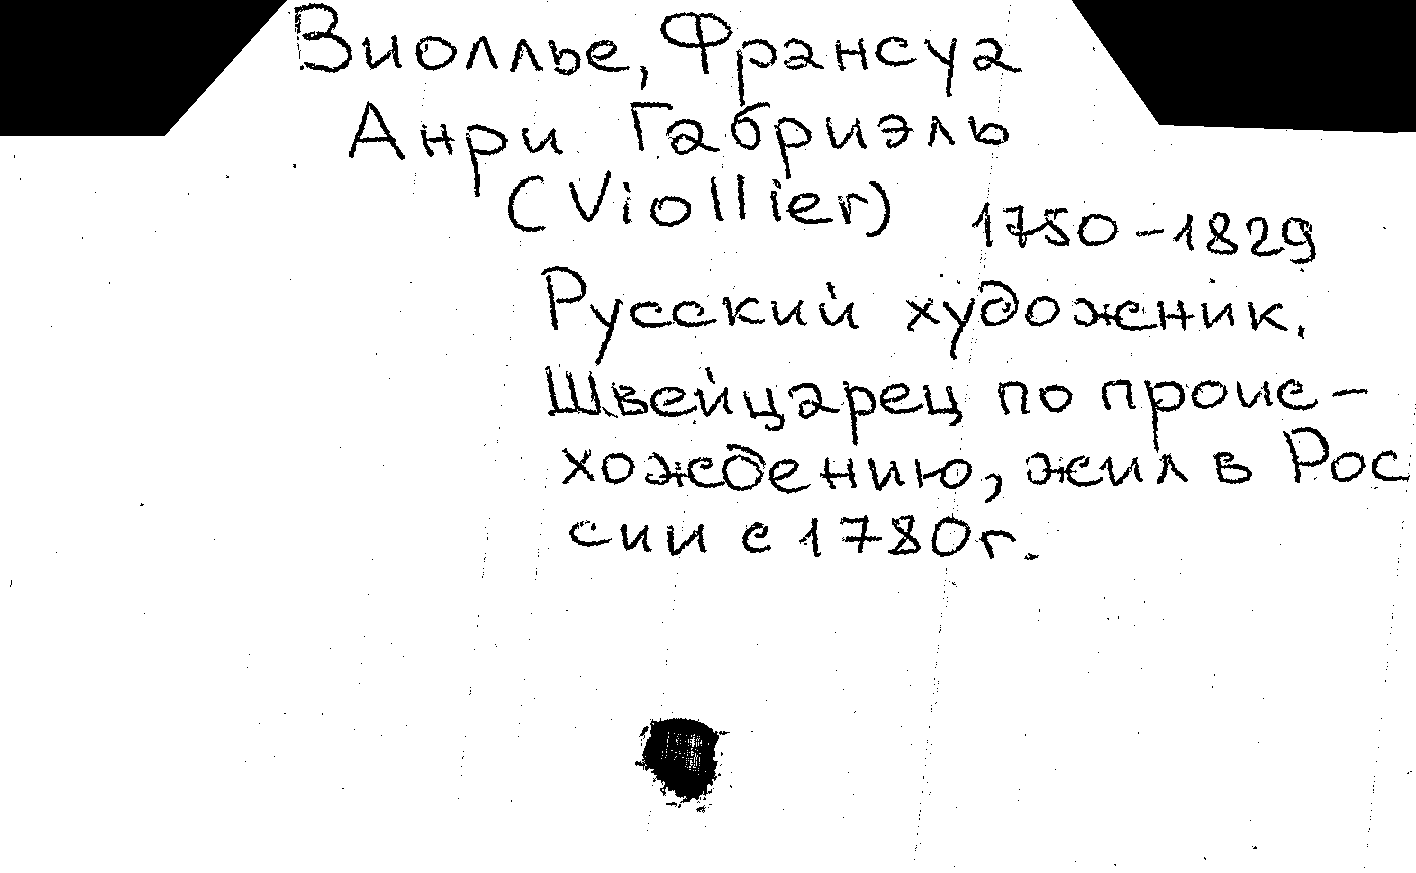 Виоллье, Франсуа
Анри Габриэль
(Viollier) 1750-1829
Русский художник.
Швейцарец по проис-
хождению, жил в Рос
сии с 1780г.